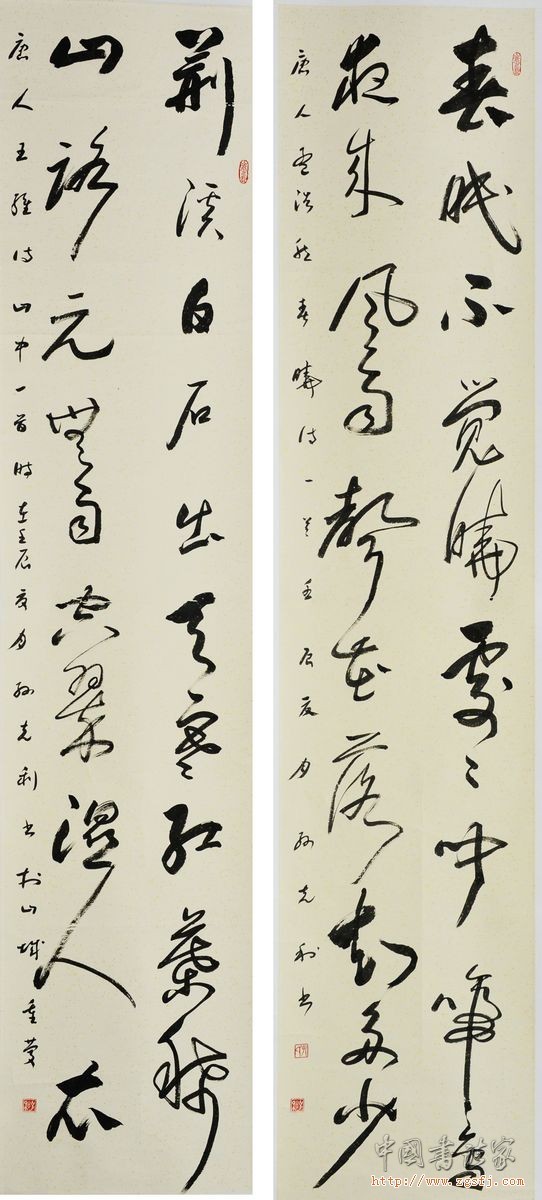 春眠不觉曉處〻闻啼鸟
夜来风雨聲花落知多少
唐人孟浩然春曉诗一首壬辰夏月孙克利书
荆溪白石出天寒红葉稀
山路元無雨空翠湿人衣
唐人王維诗山中一首时在壬辰夏月孙克利书於山城重慶
中国书法家
http://www.zgsfj.com